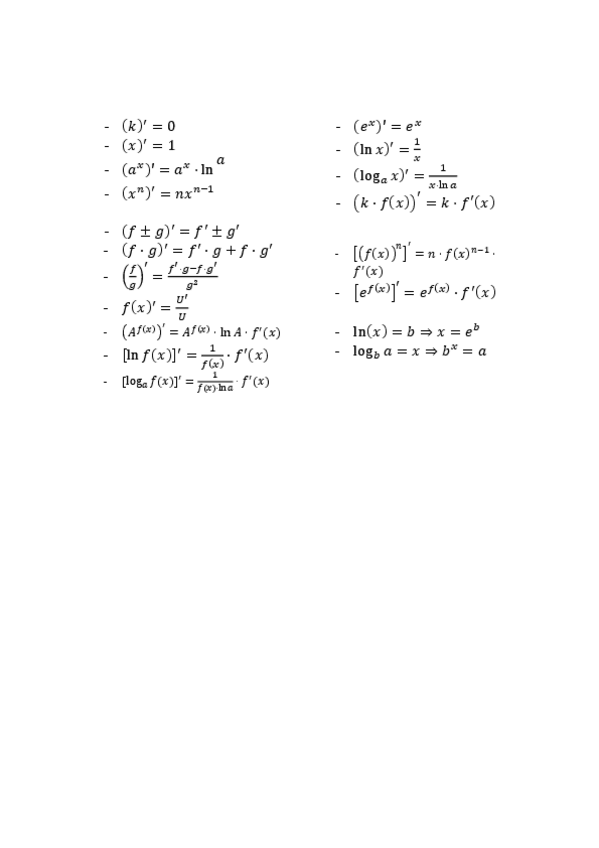 - (k)′ = 0
- (x)′ = 1
- (aˣ)′ = aˣ · ln ᵃ
- (xⁿ)′ = nxⁿ⁻¹
- (f ± g)′ = f′ ± g′
- (f · g)′ = f′ · g + f · g′
- (f/g)′ = (f′·g−f·g′)/g²
- f(x)′ = U′/U
- (A^f(x))′ = A^f(x) · ln A · f′(x)
- [ln f(x)]′ = 1/f(x) · f′(x)
- [logₐ f(x)]′ = 1/(f(x)·ln a) · f′(x)
- (eˣ)′ = eˣ
- (ln x)′ = 1/x
- (logₐ x)′ = 1/(x·ln a)
- (k · f(x))′ = k · f′(x)
- [(f(x))ⁿ]′ = n · f(x)ⁿ⁻¹ ·
f′(x)
- [e^f(x)]′ = e^f(x) · f′(x)
- ln(x) = b ⇒ x = eᵇ
- log_b a = x ⇒ bˣ = a